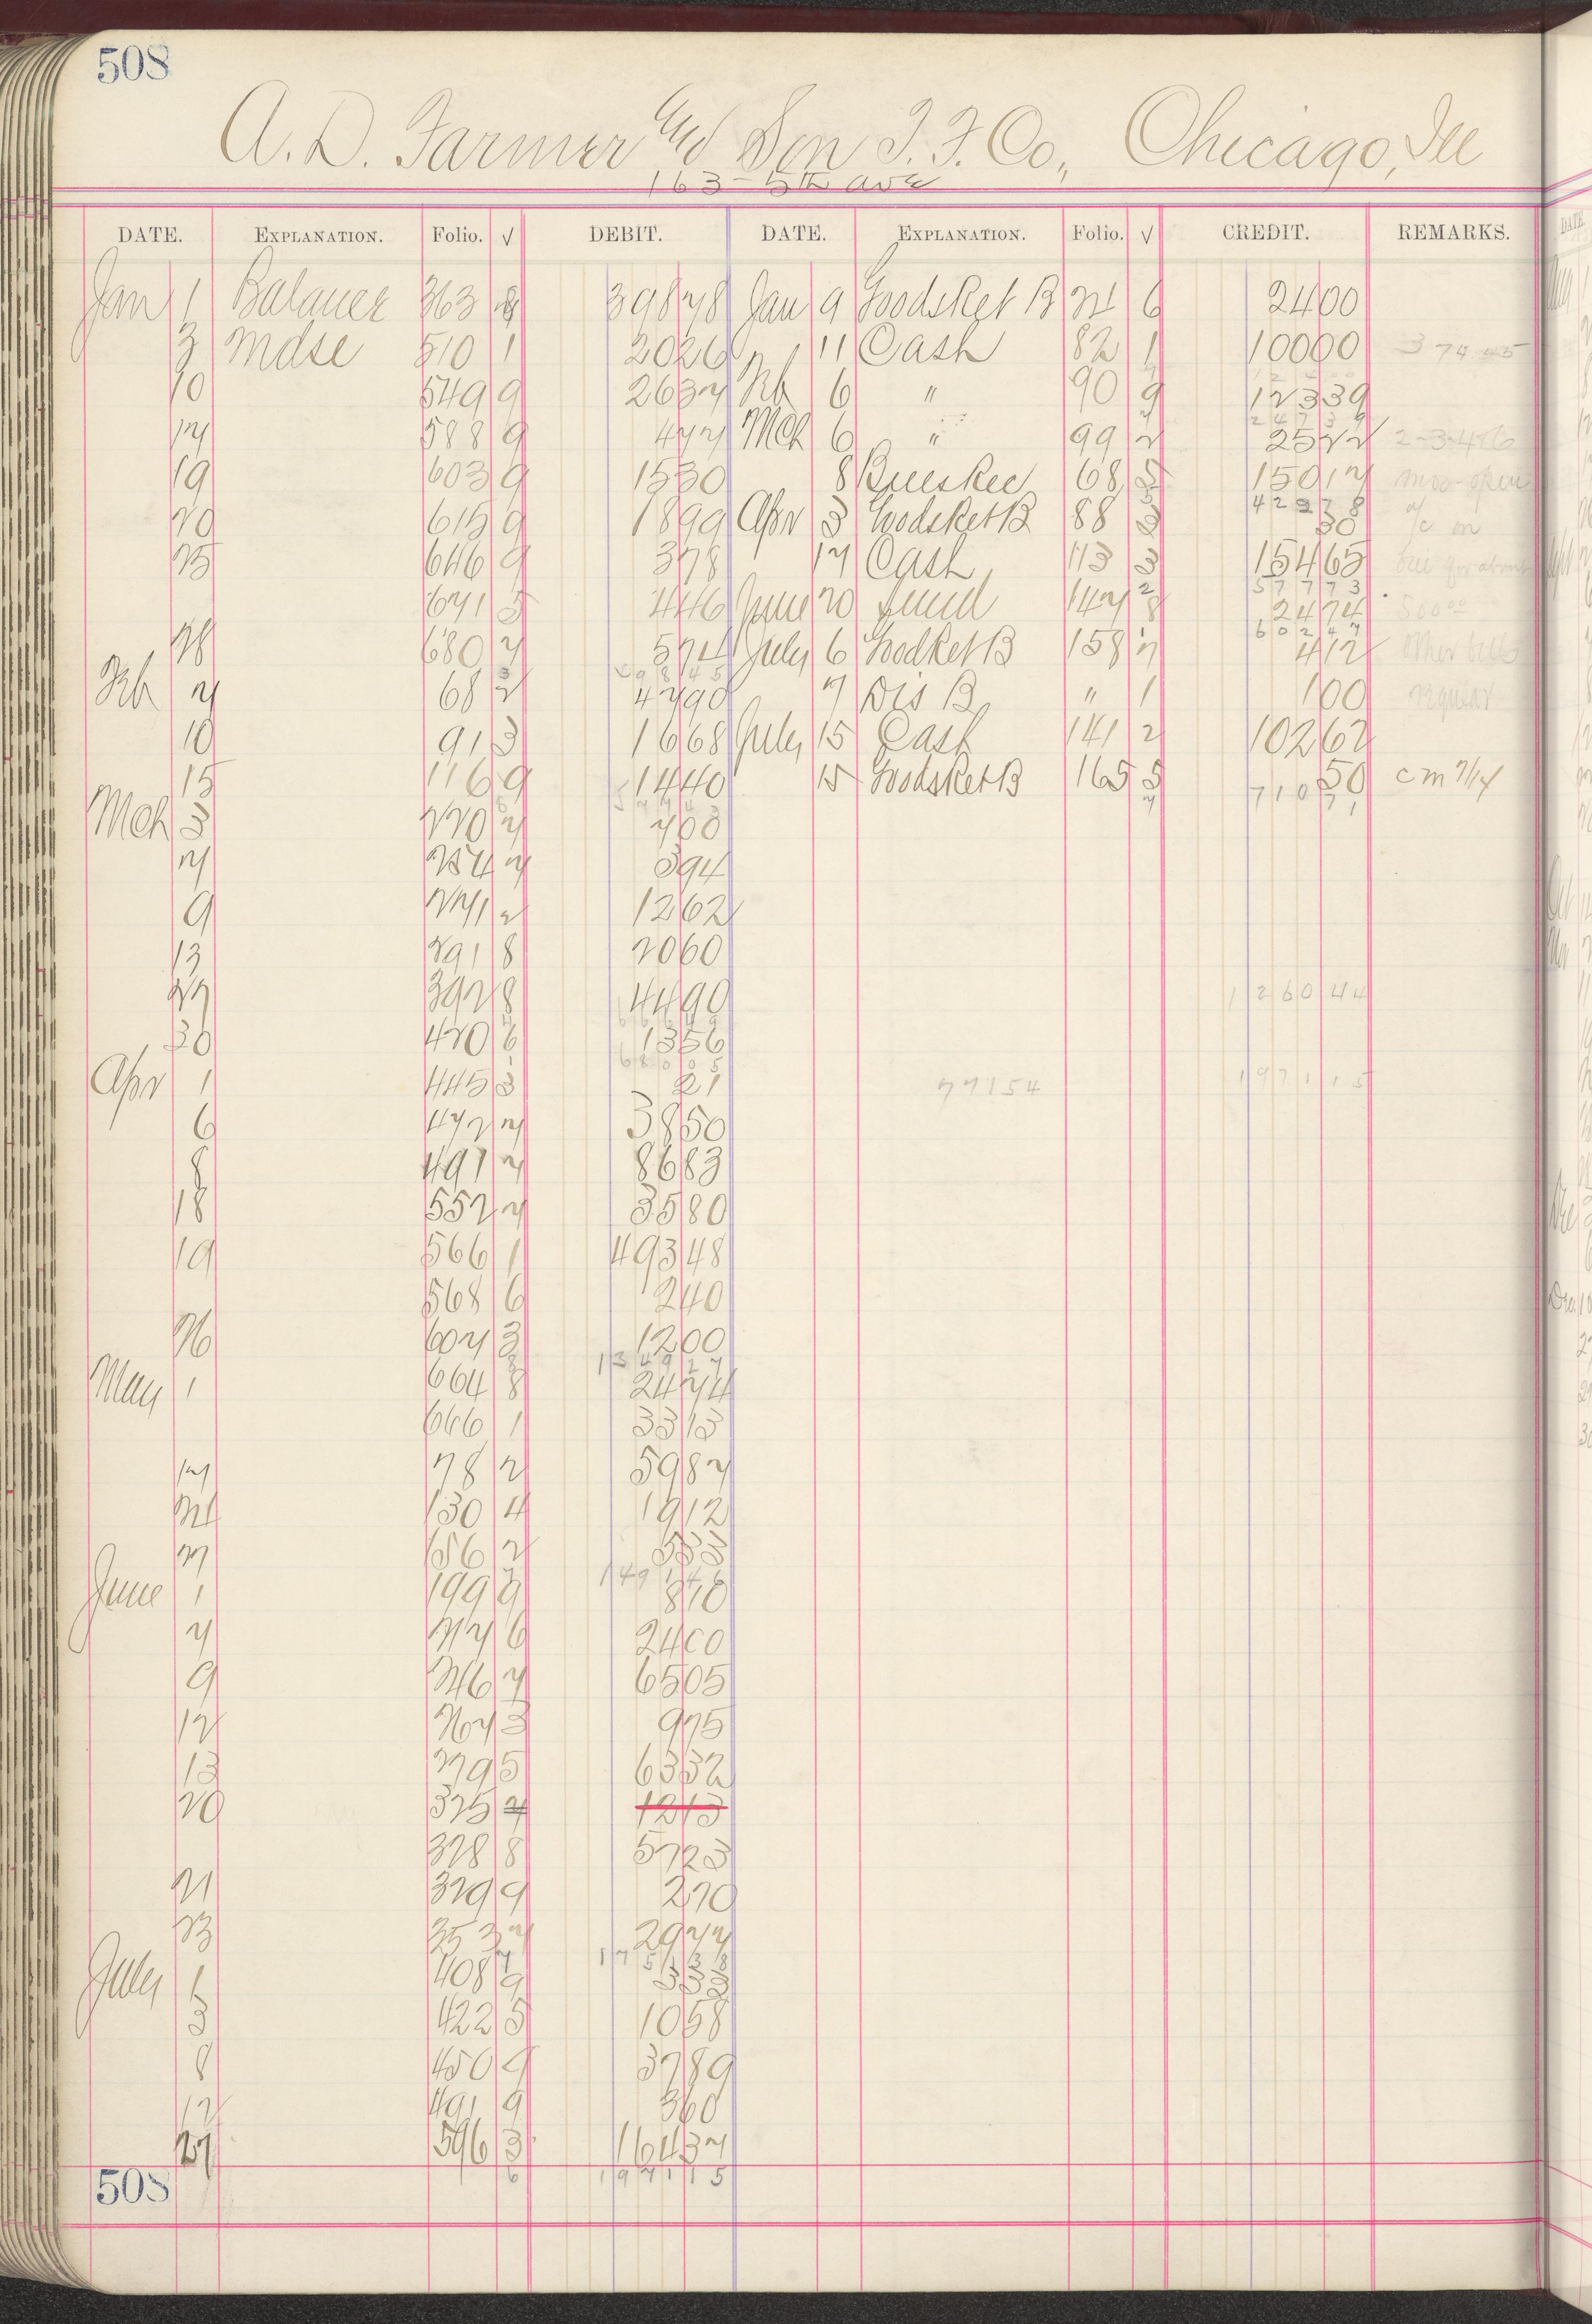 508
A. D. Farmer and Son T. F. Co., Chicago, Ill
163 - 5th ave
DATE. EXPLANATION. Folio. √ DEBIT. DATE. EXPLANATION. Folio. √ CREDIT. REMARKS.
Jan 1 Balance 363 8 398 78 Jan 9 Goodsket B 24 6 24 00
3 Mdse 510 1 20 26 11 Cash 82 1 100 00 374 45
10 549 9 26 37 Feb 6 " 90 9 123 39
17 588 9 4 77 Mch 6 " 99 2 25 22
19 603 9 15 30 8 68 150 17
20 615 9 18 99 Apr 3 Goodsket B 88 30
25 646 9 3 78 17 Cash 113 3 154 65
671 5 4 46 June 20 147 8 24 74 500 00
28 680 7 5 74 July 6 Goodket B 158 7 4 12
Feb 7 68 2 47 90 7 Dis B " 1 1 00
10 91 3 16 68 July 15 Cash 141 2 102 62
15 116 9 14 40 15 Goodsket B 165 5 50 cm 7/14
7 1 0 7 1
Mch 3 220 7 7 00
7 254 7 3 94
9 271 2 12 62
13 291 8 20 60
27 392 8 44 90 1 2 6 0 4 4
30 420 6 13 56
6 8 0 0 5
Apr 1 445 3 21 77154 1 9 7 1 1 5
6 472 7 38 50
8 491 7 86 83
18 552 7 35 80
19 566 1 493 48
568 6 2 40
26 607 3 12 00
1 3 4 9 2 7
May 1 664 8 24 74
666 1 33 13
17 78 2 59 87
24 130 4 19 12
27 156 2 5 33
June 1 199 9 8 10
7 217 6 24 00
9 246 7 65 05
12 267 3 9 75
13 279 5 63 32
20 325 7 12 13
328 8 57 23
21 329 9 2 70
23 353 7 29 77
July 1 408 9 3 33
3 422 5 10 58
8 450 9 37 89
12 491 9 3 60
27 596 3 164 37
6 1 9 7 1 1 5
508